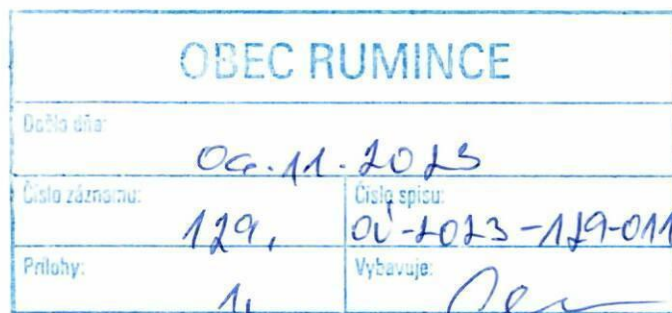 OBEC RUMINCE
Došlo dňa:
11.2023
Číslo záznamu:
129,
Číslo spisu:
OÚ-2023-129-011
Prílohy:
1,
Vybavuje: